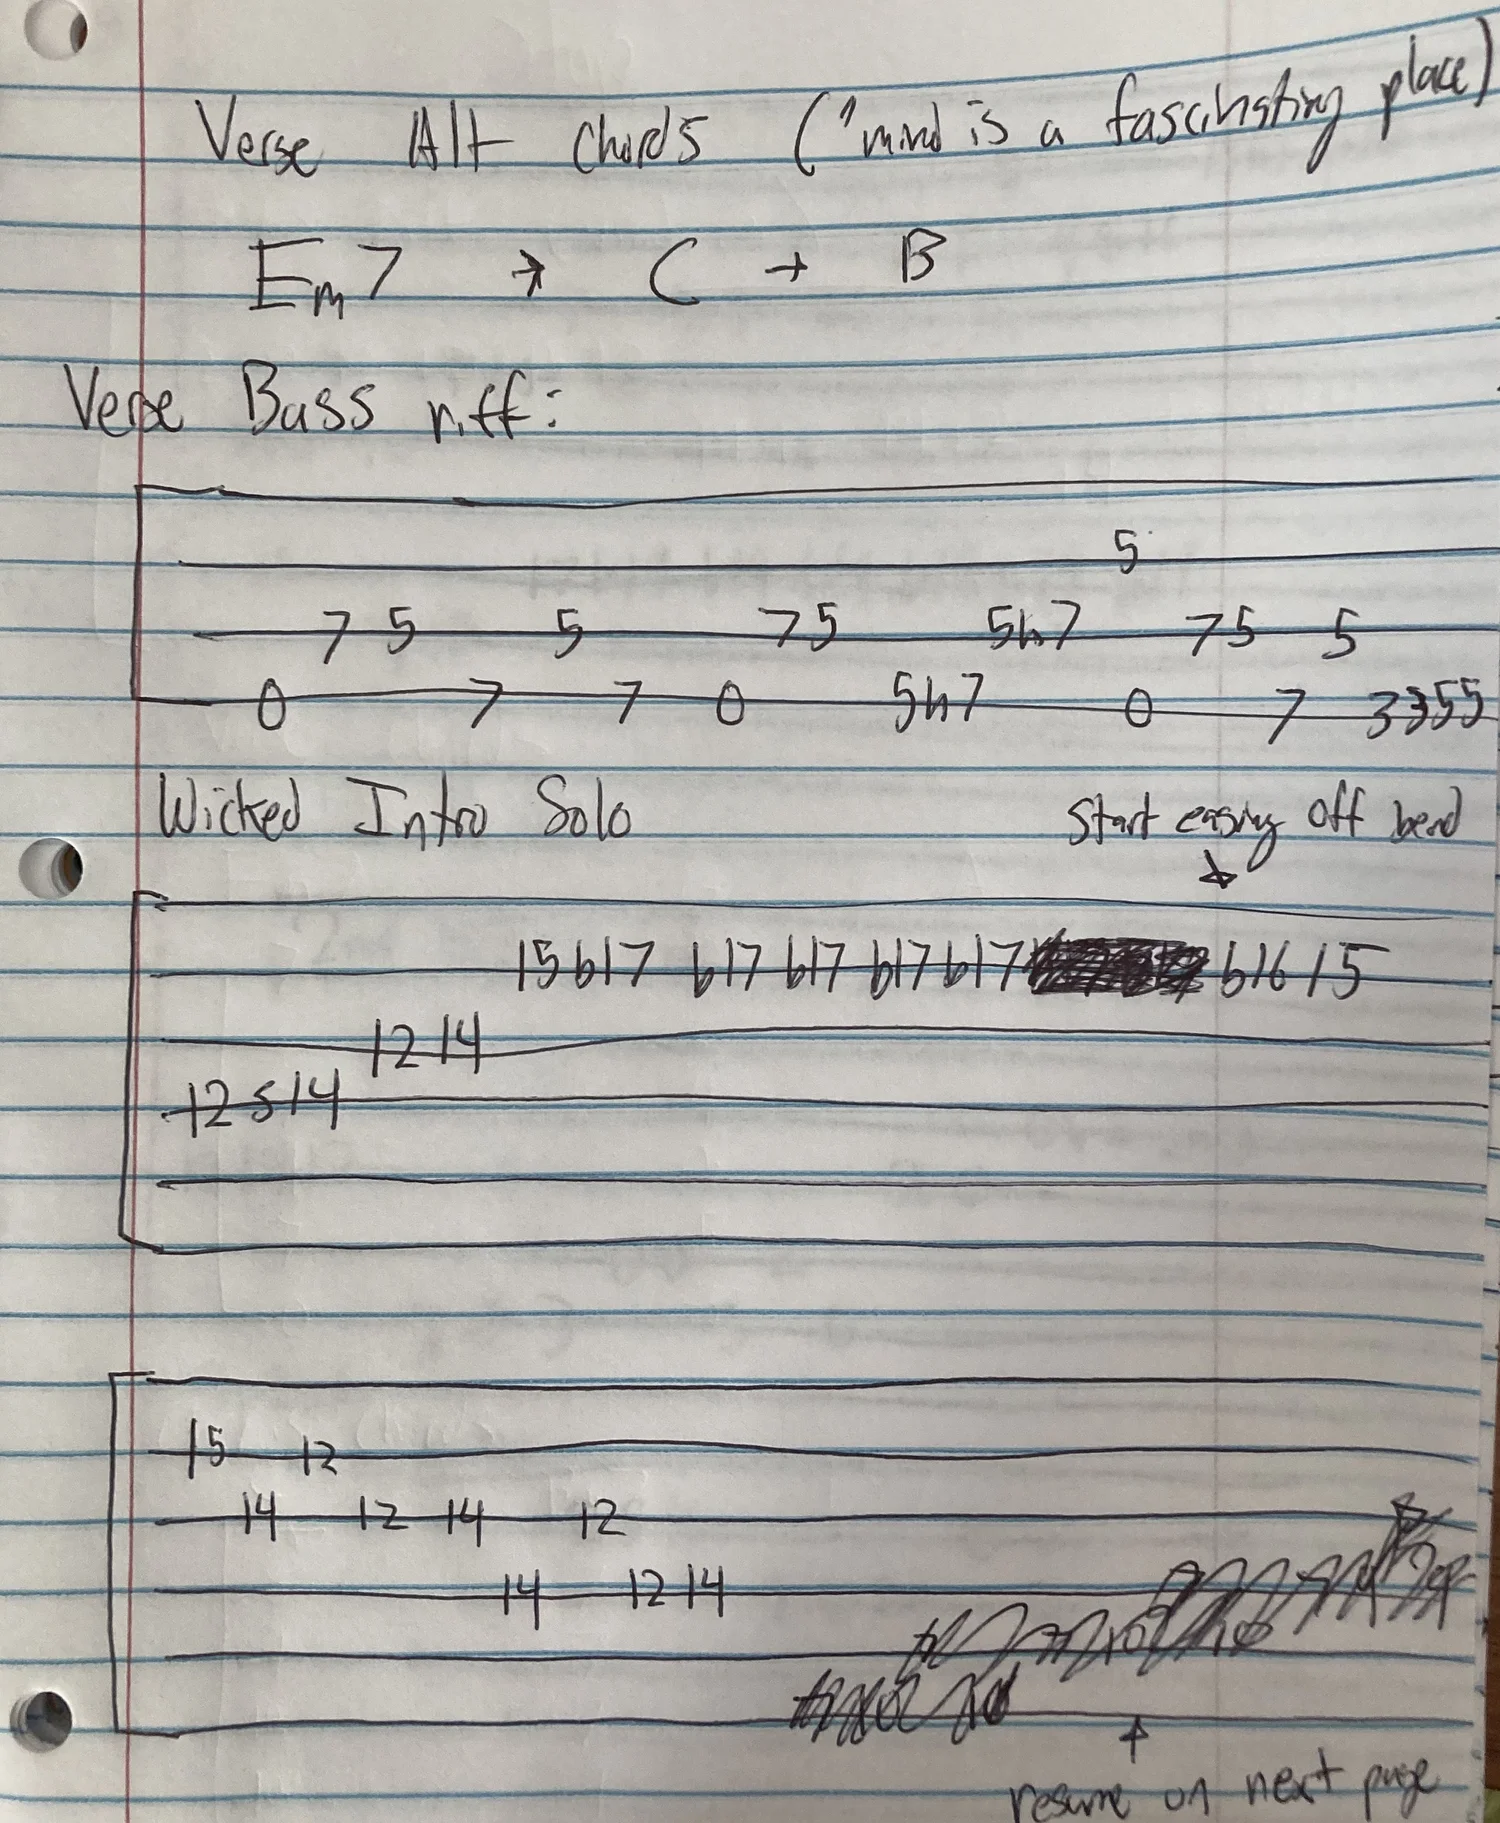 Verse Alt Chords ("mind is a fascinating place)
Em7 → C → B
Verse Bass riff:
5
7 5 5 7 5 5h7 7 5 5
0 7 7 0 5h7 0 7 3355
Wicked Intro Solo
Start easing off bend
15b17 b17 b17 b17 b17 b16 15
12 14
12s14
15 12
14 12 14 12
14 12 14
resume on next page